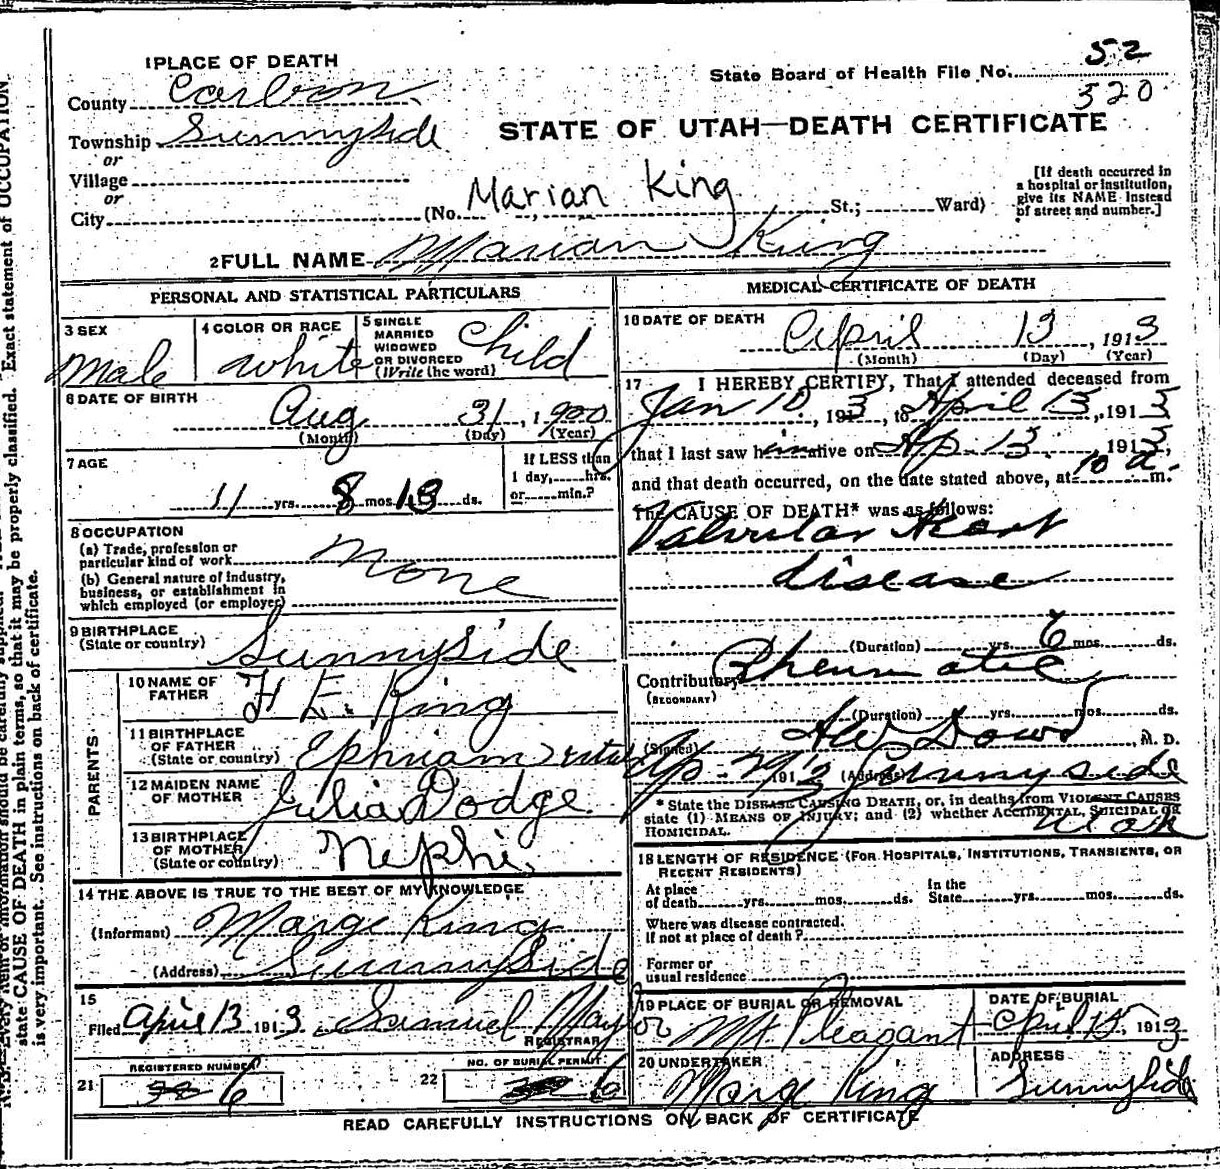 1 PLACE OF DEATH
County Carbon
Township Sunnyside
or
Village
or
City
(No. St.; Ward)
Marian King
State Board of Health File No. 52
320
STATE OF UTAH—DEATH CERTIFICATE
[If death occurred in
a hospital or institution,
give its NAME instead
of street and number.]
2 FULL NAME Marian King
PERSONAL AND STATISTICAL PARTICULARS
3 SEX
Male
4 COLOR OR RACE
White
5 SINGLE
MARRIED
WIDOWED
OR DIVORCED
(Write the word)
Child
6 DATE OF BIRTH
Aug 31, 1900
(Month) (Day) (Year)
7 AGE
11 yrs. 8 mos. 13 ds.
If LESS than
1 day, hrs.
or min.?
8 OCCUPATION
(a) Trade, profession or
particular kind of work
(b) General nature of industry,
business, or establishment in
which employed (or employer)
None
9 BIRTHPLACE
(State or country)
Sunnyside
PARENTS
10 NAME OF
FATHER
H E. King
11 BIRTHPLACE
OF FATHER
(State or country)
Ephriam
12 MAIDEN NAME
OF MOTHER
Julia Dodge
13 BIRTHPLACE
OF MOTHER
(State or country)
Nephi
14 THE ABOVE IS TRUE TO THE BEST OF MY KNOWLEDGE
(Informant) Marge King
(Address) Sunnyside
15
Filed April 13 1913, Samuel Naylor
REGISTRAR
REGISTERED NUMBER
21 6
NO. OF BURIAL PERMIT
22 6
MEDICAL CERTIFICATE OF DEATH
16 DATE OF DEATH
April 13, 1913
(Month) (Day) (Year)
17 I HEREBY CERTIFY, That I attended deceased from
Jan 10, 1913, to April 13, 1913
that I last saw him alive on Ap. 13, 1913,
and that death occurred, on the date stated above, at 10 a. m.
The CAUSE OF DEATH* was as follows:
Valvular Heart
disease
(Duration) yrs. 6 mos. ds.
Contributory Rheumatic
(SECONDARY)
(Duration) yrs. mos. ds.
(Signed) A W Dowd, M. D.
Ap - 29, 1913 (Address) Sunnyside
Utah
* State the DISEASE CAUSING DEATH, or, in deaths from VIOLENT CAUSES
state (1) MEANS OF INJURY; and (2) whether ACCIDENTAL, SUICIDAL OR
HOMICIDAL.
18 LENGTH OF RESIDENCE (FOR HOSPITALS, INSTITUTIONS, TRANSIENTS, OR
RECENT RESIDENTS)
At place
of death yrs. mos. ds.
In the
State yrs. mos. ds.
Where was disease contracted.
if not at place of death?
Former or
usual residence
19 PLACE OF BURIAL OR REMOVAL
Mt Pleasant
DATE OF BURIAL
April 15, 1913
20 UNDERTAKER
Marge King
ADDRESS
Sunnyside
READ CAREFULLY INSTRUCTIONS ON BACK OF CERTIFICATE
state CAUSE OF DEATH in plain terms, so that it may be properly classified. Exact statement of OCCUPATION
is very important. See instructions on back of certificate.